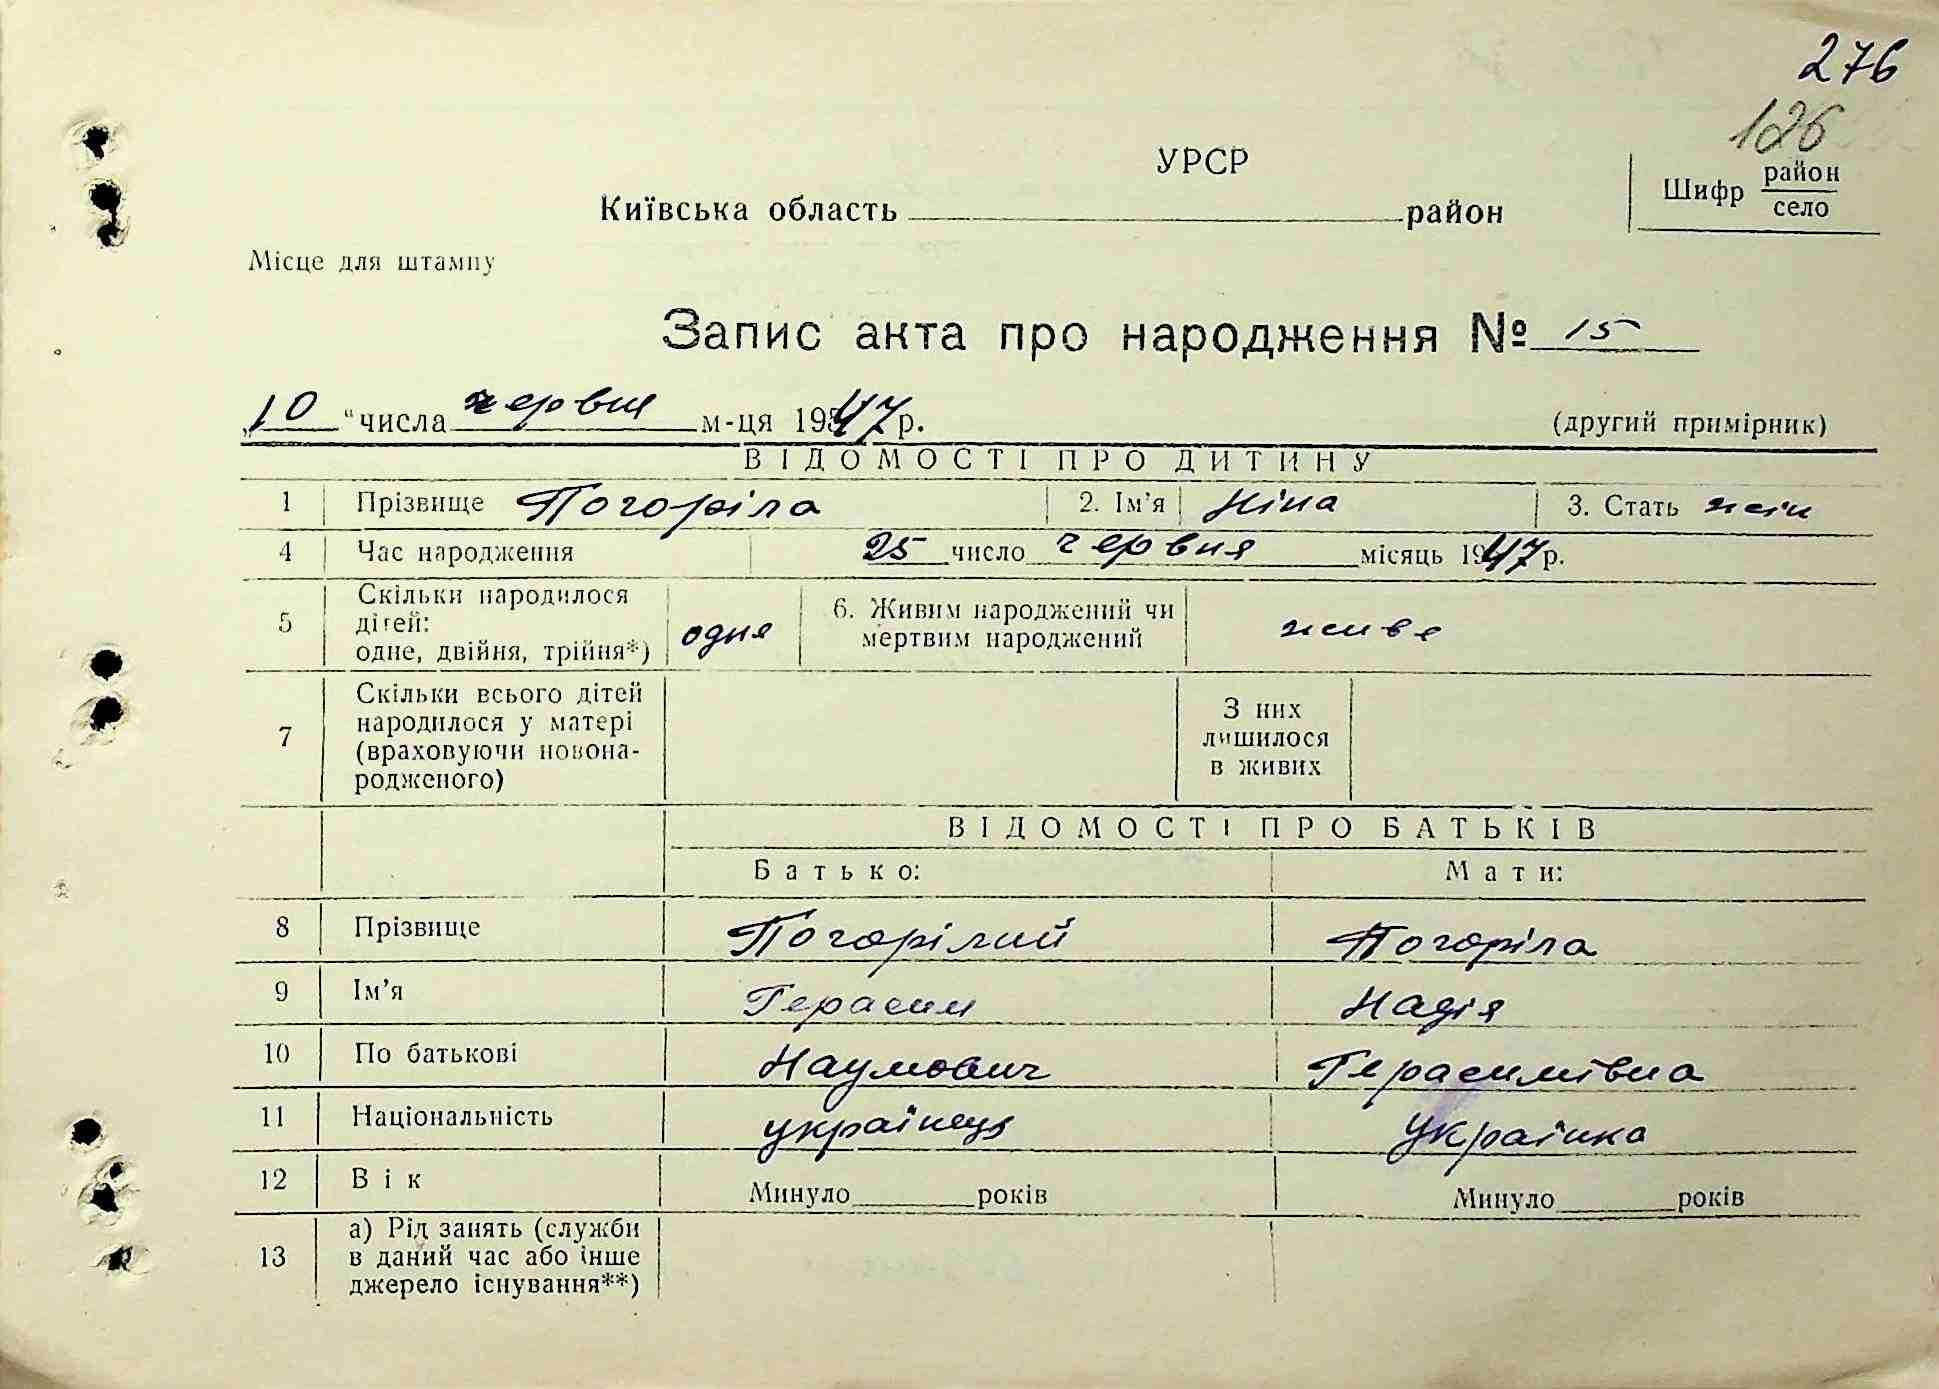 276
126
УРСР
Шифр район
село
Київська область район
Місце для штампу
Запис акта про народження № 15
„10“ числа червня м-ця 1947 р. (другий примірник)
ВІДОМОСТІ ПРО ДИТИНУ
1 Прізвище Погоріла 2. Ім’я Ніна 3. Стать жін
4 Час народження 25 число червня місяць 1947 р.
5 Скільки народилося
дітей:
одне, двійня, трійня*) одня 6. Живим народжений чи
мертвим народжений живе
7 Скільки всього дітей
народилося у матері
(враховуючи новона-
родженого) З них
лишилося
в живих
ВІДОМОСТІ ПРО БАТЬКІВ
Батько: Мати:
8 Прізвище Погорілий Погоріла
9 Ім’я Герасим Надія
10 По батькові Наумович Герасимівна
11 Національність українець Українка
12 Вік Минуло років Минуло років
13 а) Рід занять (служби
в даний час або інше
джерело існування**)